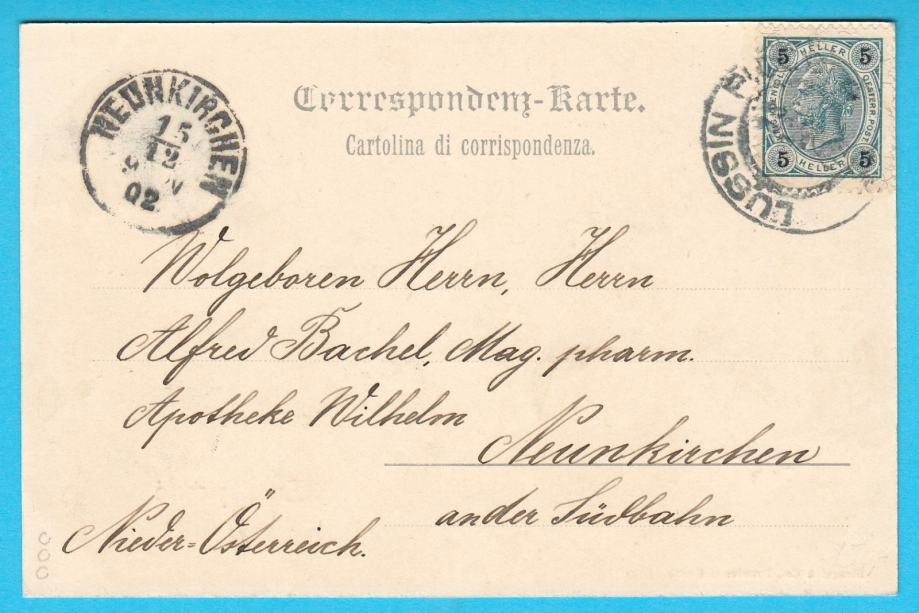 Correspondenz-Karte.
Cartolina di corrispondenza.
NEUNKIRCHEN
15
12
02
LUSSIN
5 HELLER 5
5 HELLER 5
Wolgeboren Herrn, Herrn
Alfred Bachel, Mag. pharm.
Apotheke Wilhelm
Neunkirchen
an der Südbahn
Nieder=Österreich.